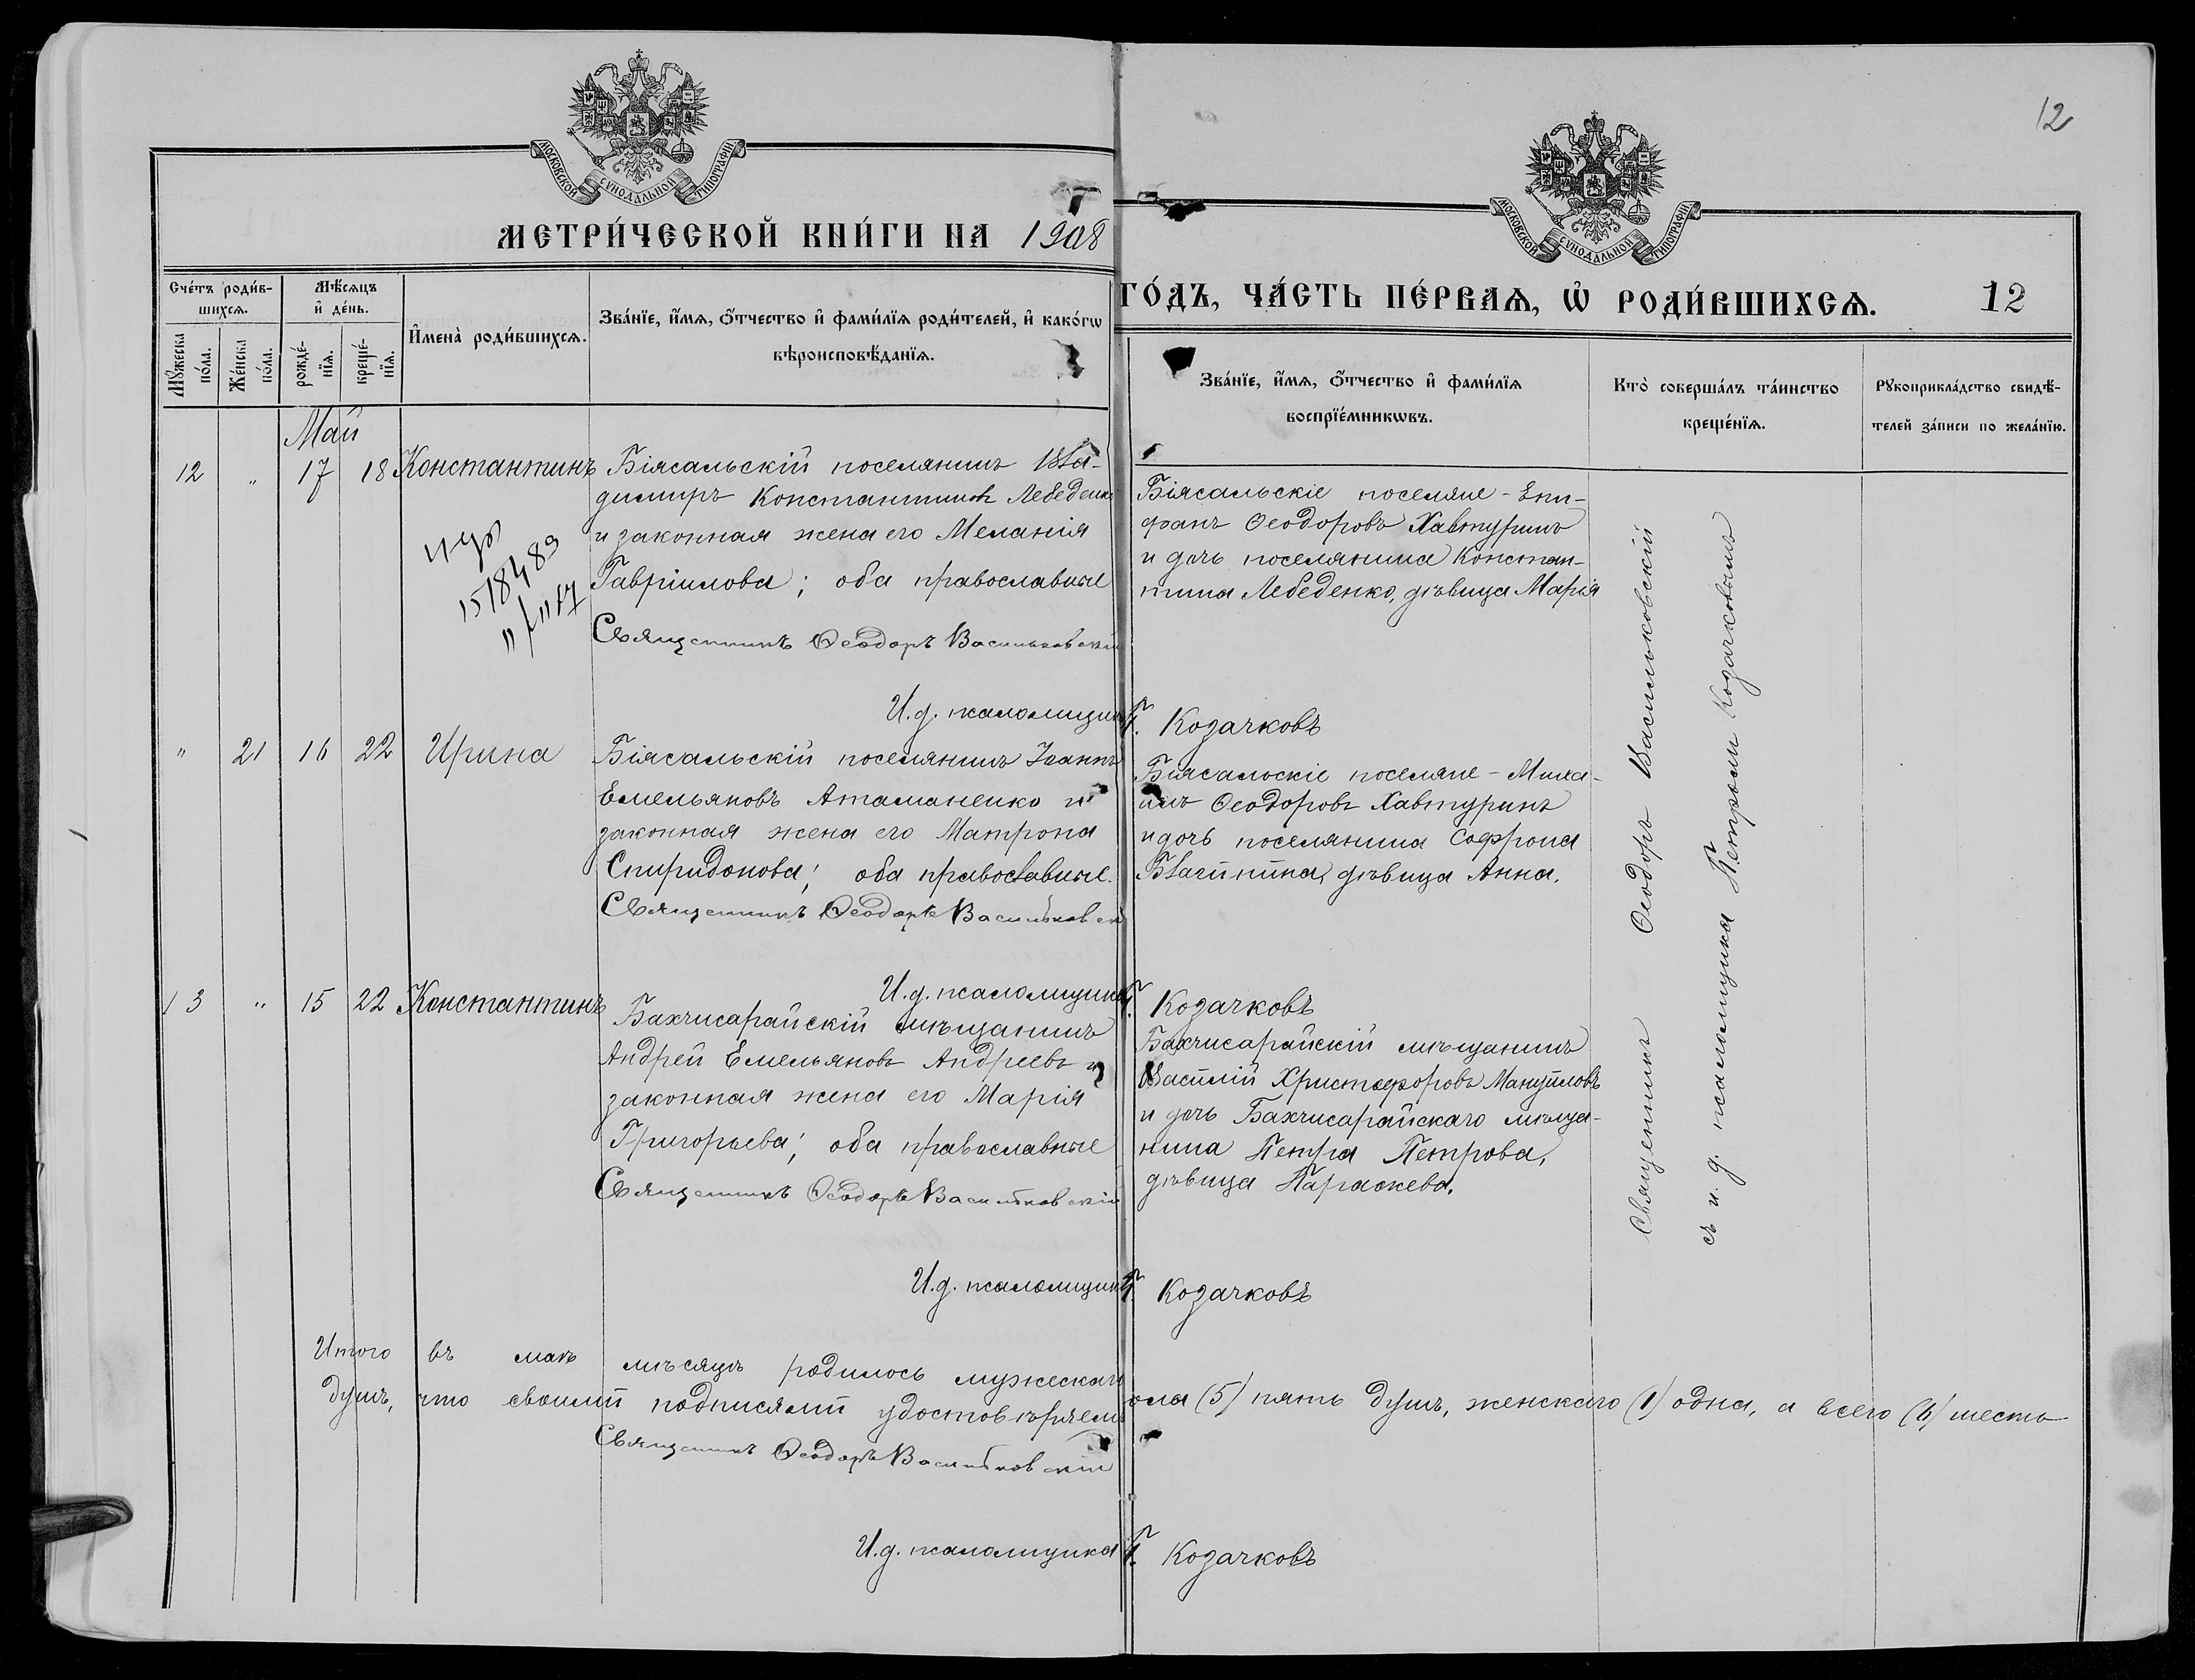 12
МОСКОВСКОЙ СѴНОДАЛЬНОЙ ТИПОГРАФІИ
МОСКОВСКОЙ СѴНОДАЛЬНОЙ ТИПОГРАФІИ
МЕТРИ́ЧЕСКОЙ КНИ́ГИ НА 1908
ГО́ДЪ, ЧА́СТЬ ПЕ́РВАѦ, Ѡ РОДИ́ВШИХСѦ. 12
Сче́тъ роди́в-
шихсѧ.
Мꙋ́жеска
по́ла.
Же́нска
по́ла.
Мѣ́сѧцъ
и҆ де́нь.
рожде́-
нїѧ.
креще́-
нїѧ.
И҆мена̀ роди́вшихсѧ.
Зва́нїе, и҆́мѧ, ѻ҆́тчество и҆ фами́лїѧ роди́телей, и҆ како́гѡ
вѣроисповѣ́данїѧ.
Зва́нїе, и҆́мѧ, ѻ҆́тчество и҆ фами́лїѧ
воспрїе́мникѡвъ.
Кто̀ соверша́лъ та́инство
креще́нїѧ.
Рꙋкоприкла́дство свидѣ́-
телей за́писи по жела́нїю.
Май
12 " 17 18 Константинъ
Біясальскій поселянинъ Вла-
димиръ Константиновъ Лебеденко
и законная жена его Меланія
Гавріилова; оба православные
Священникъ Ѳеодоръ Васильковскій
И.д. псаломщика П. Козачковъ
Біясальскіе поселяне - Епи-
фанъ Ѳеодоровъ Хавтуринъ
и дочь поселянина Констан-
тина Лебеденко, дѣвица Марія
" 21 16 22 Ирина
Біясальскій поселянинъ Іоаннъ
Емельяновъ Атаманенко и
законная жена его Матрона
Спиридонова; оба православные.
Священникъ Ѳеодоръ Васильковскій
И.д. псаломщика П. Козачковъ
Біясальскіе поселяне - Миха-
илъ Ѳеодоровъ Хавтуринъ
и дочь поселянина Софрона
дѣвица Анна.
13 " 15 22 Константинъ
Бахчисарайскій мѣщанинъ
Андрей Емельяновъ Андреевъ и
законная жена его Марія
Григорьева; оба православные
Священникъ Ѳеодоръ Васильковскій
И.д. псаломщика П. Козачковъ
Бахчисарайскій мѣщанинъ
Василій Христофоровъ Мануиловъ
и дочь Бахчисарайскаго мѣща-
нина Петра Петрова,
дѣвица Параскева.
Священникъ Ѳеодоръ Васильковскій
съ и. д. псаломщика Петромъ Козачковымъ
Итого въ маѣ мѣсяцѣ родилось мужескаго пола (5) пять душъ, женскаго (1) одна, а всего (6) шесть
душъ, что своими подписями удостовѣряемъ
Священникъ Ѳеодоръ Васильковскій
И.д. псаломщика П. Козачковъ